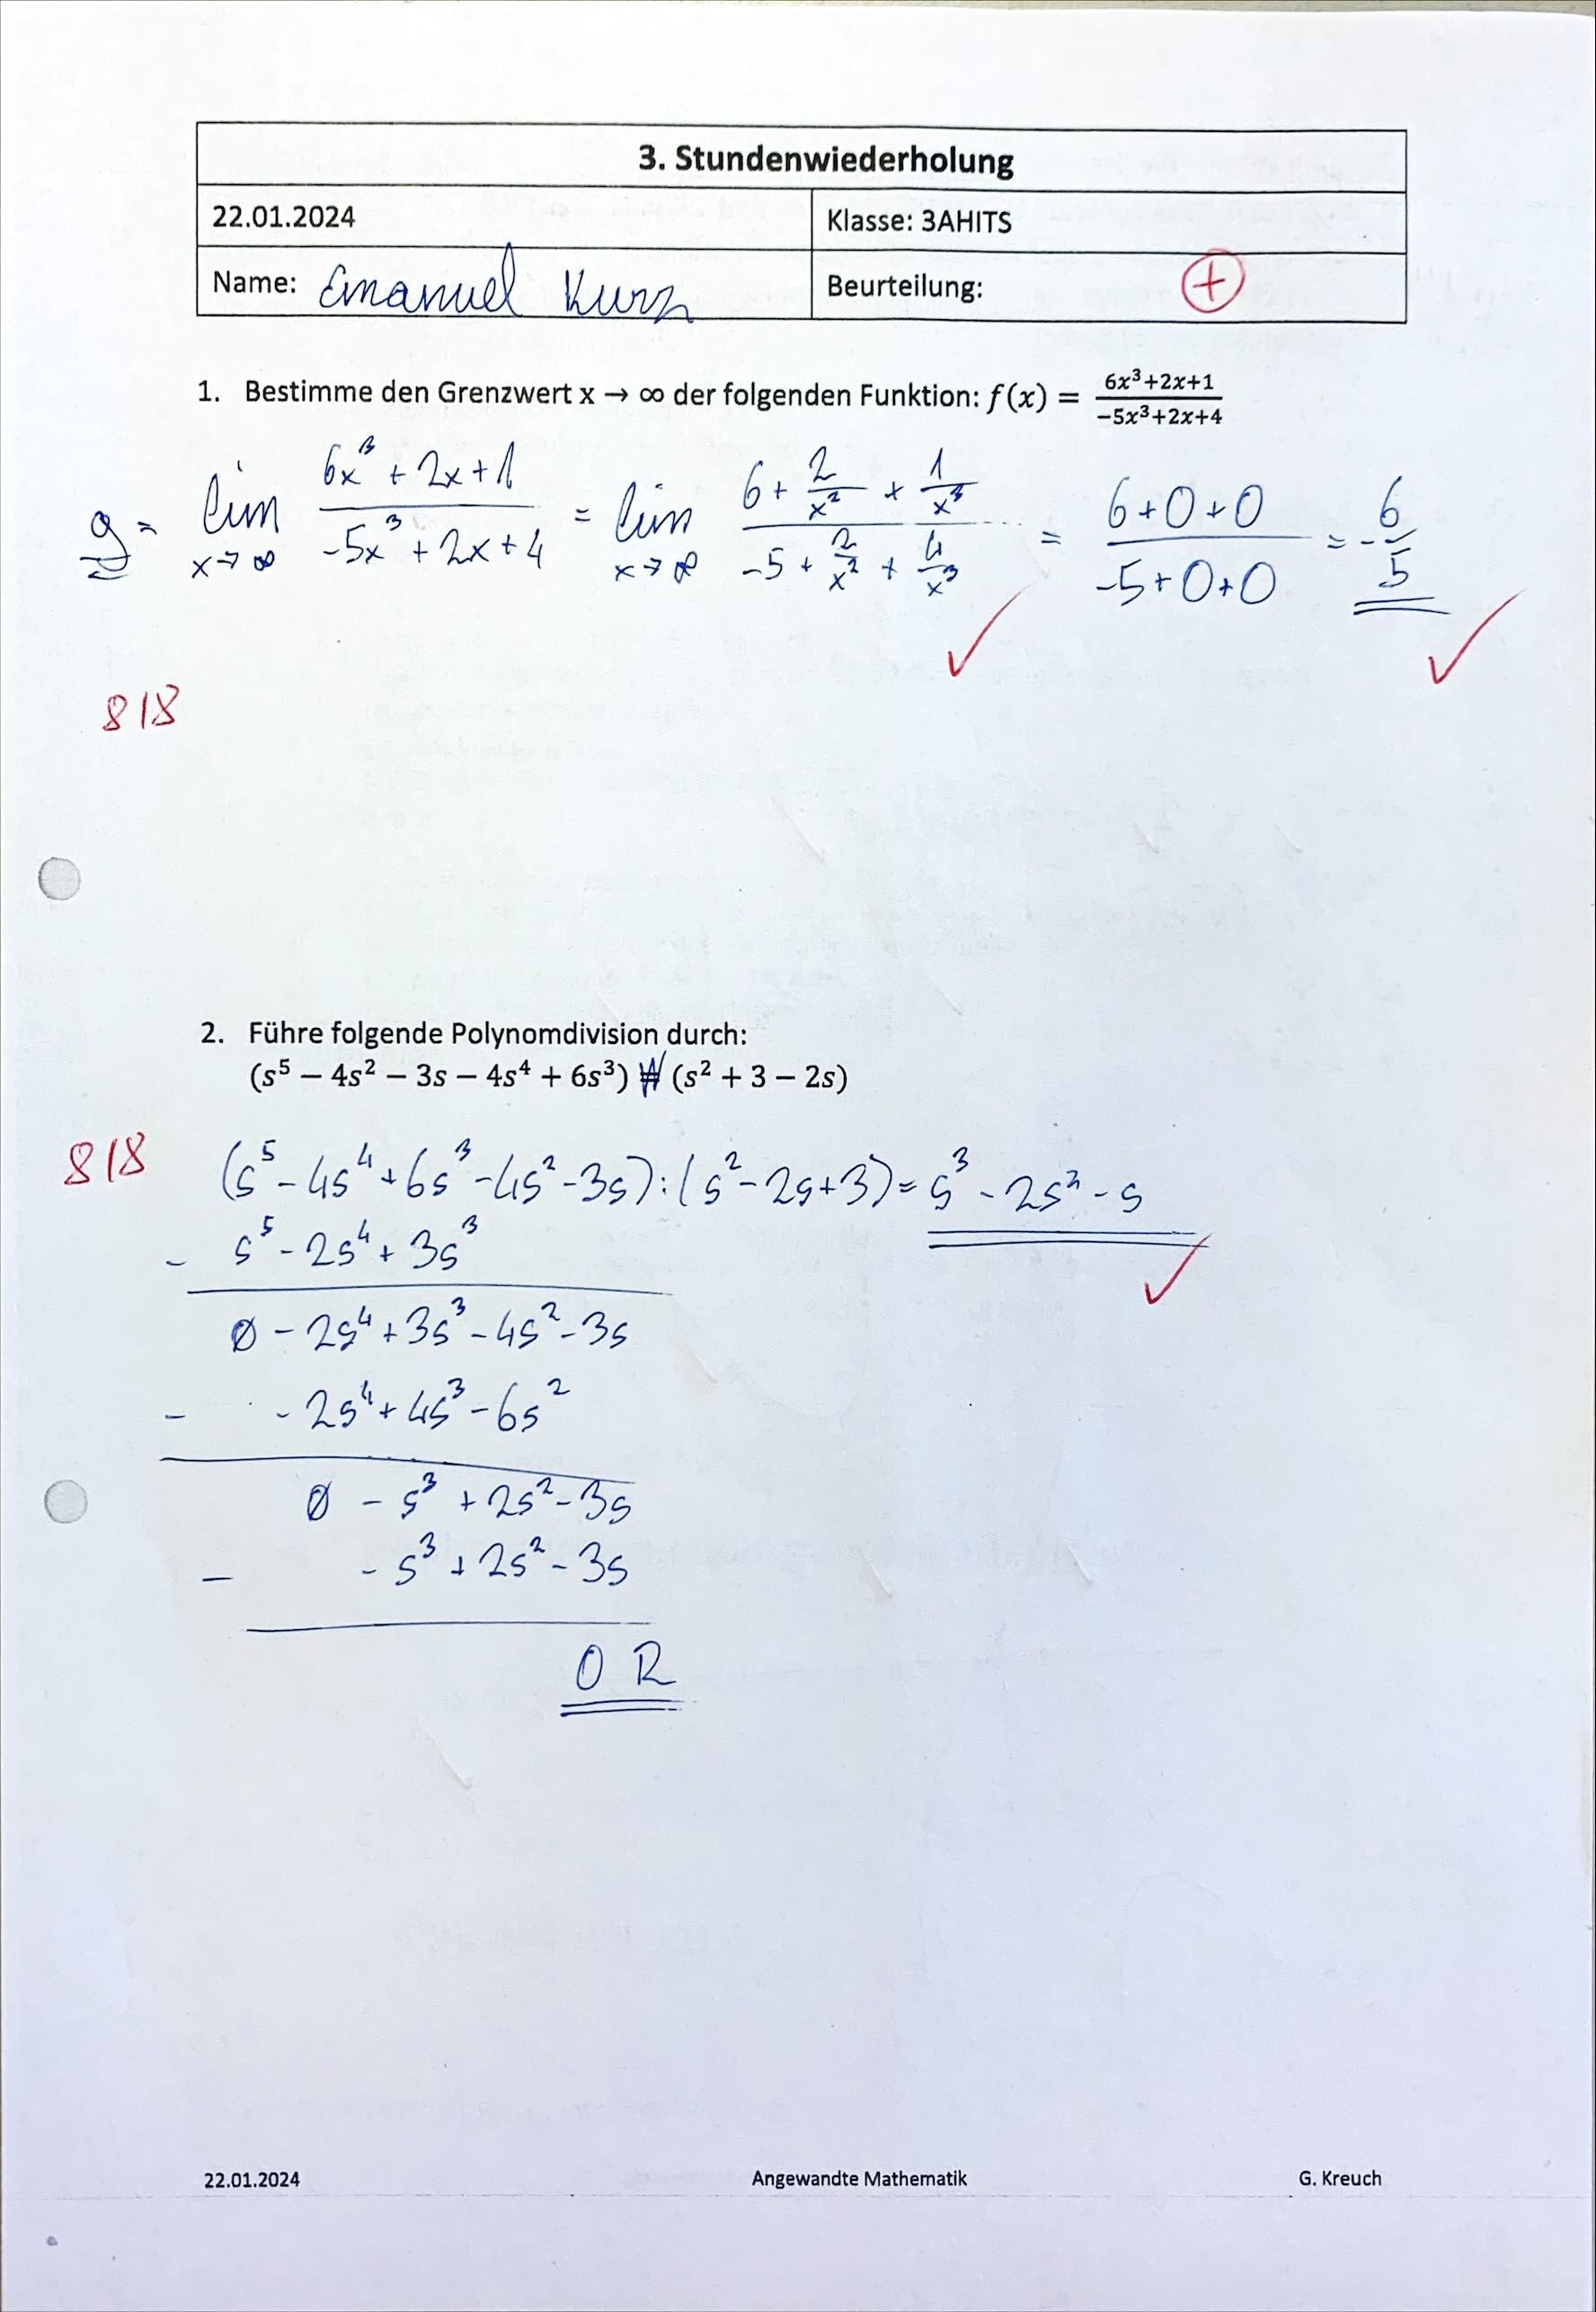 3. Stundenwiederholung
22.01.2024 Klasse: 3AHITS
Name: Emanuel Kurz Beurteilung: +
1. Bestimme den Grenzwert x → ∞ der folgenden Funktion: f(x) = (6x³+2x+1)/(−5x³+2x+4)
g = lim x→∞ (6x³ + 2x + 1)/(-5x³ + 2x + 4) = lim x→∞ (6 + 2/x² + 1/x³)/(-5 + 2/x² + 4/x³) = (6+0+0)/(-5+0+0) = -6/5
8/8
2. Führe folgende Polynomdivision durch:
(s⁵ – 4s² – 3s – 4s⁴ + 6s³) (s² + 3 – 2s)
8/8
(s⁵ - 4s⁴ + 6s³ - 4s² - 3s) : (s² - 2s + 3) = s³ - 2s² - s
- s⁵ - 2s⁴ + 3s³
0 - 2s⁴ + 3s³ - 4s² - 3s
- - 2s⁴ + 4s³ - 6s²
0 - s³ + 2s² - 3s
- - s³ + 2s² - 3s
0 R
22.01.2024 Angewandte Mathematik G. Kreuch